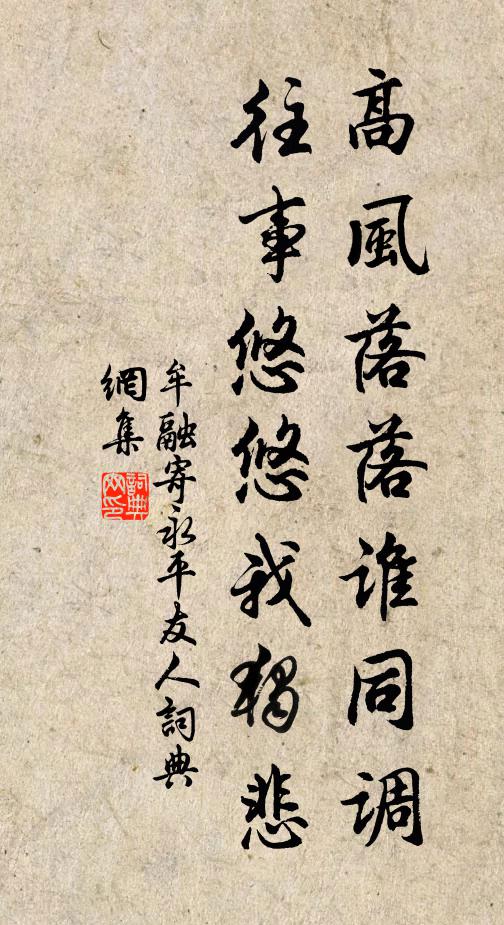 高風落落谁同调
往事悠悠我獨悲
牟融寄永平友人詞典
網集
詞典
网印